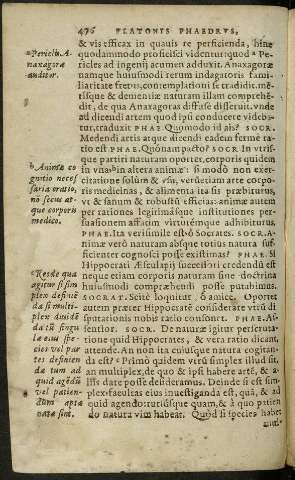 476 PLATONIS PHAEDRVS,
& vis efficax in quauis re perficienda, hinc
quodammodo proficisci videntur: quod Pe
ricles ad ingenij acumen adduxit. Anaxagoræ
namque huiusmodi rerum indagatoris fami-
liaritate fretus, contemplationi se tradidit. mẽ-
tisque & dementiæ naturam illam comprehẽ-
dit, de qua Anaxagoras diffuse disseruit. vnde
ad dicendi artem quod ipsi conducere videba-
tur, traduxit PHAE. Quomodo id ais? SOCR.
Medendi artis atque dicendi eadem fermè ra-
tio est PHAE. Quónam pacto? SOCR. In vtris-
que partiri naturam oportet, corporis quidem
in vna: in altera animæ: si modò non exer-
citatione solùm & vsu, verumetiam arte corpo-
ris medicinas, & alimenta ita sis præbiturus,
vt & sanum & robustũ efficias: animæ autem
per rationes legitimásque institutiones per-
suasionem affatim virtutémque adhibiturus.
PHAE. Ita verisimile est ô Socrates. SOCR. A-
nimæ verò naturam absque totius natura suf-
ficienter cognosci posse existimas? PHAE. Si
Hippocrati Æsculapij successori credendũ est
neque etiam corporis naturam sine doctrina
huiusmodi comprehendi posse putabimus.
SOCRAT. Scitè loquitur ô amice. Oportet
autem præter Hippocratẽ considerare vtrũ di-
sputationis nobis ratio constet. PHAE. As-
sentior. SOCR. De naturæ igitur perscruta-
tione quid Hippocrates, & vera ratio dicant,
attende. An non ita cuiusque natura cogitan-
da est? Primò quidem vtrũ simplex illud sit,
an multiplex, de quo & ipsi habere artẽ, & a-
lijs dare posse desideramus. Deinde si est sim-
plex facultas eius inuestiganda est, quá, & ad
quid agendo: rursúsque quam, & à quo patien
do natura vim habeat. Quòd si species habet
a Periclis A-
naxagoræ
auditor.
b Animæ co
gnitio neces
saria oratio,
nõ secus at-
que corporis
medico.
c Recte qua
agitur si sim
plex definiẽ
da si multi-
plex diuidẽ
da in singu
las eius spe-
cies vel par
tes definien
da tum ad
quid agẽdũ
vel patien-
dum apta
nata sint.